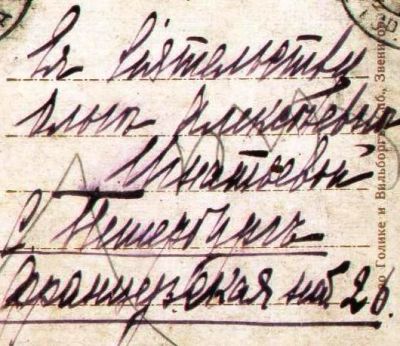 Ея Сіятельству
Ольгѣ Алексѣевнѣ
Игнатьевой
С Петербургъ
Французская наб 26.
Голике и Вильборгъ